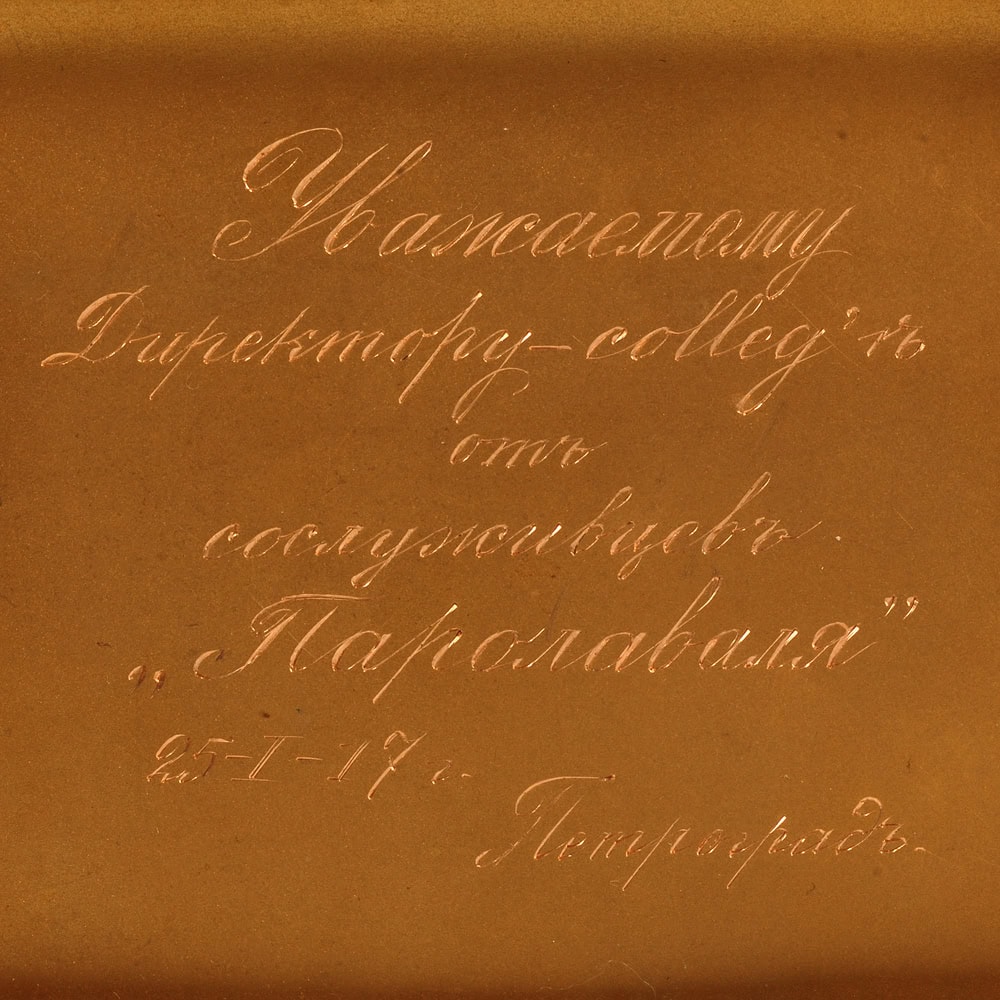 Уважаемому
Директору–colleg'ѣ
отъ
сослуживцовъ
„Паролаваля”
25-I-17 г.
Петроградъ.